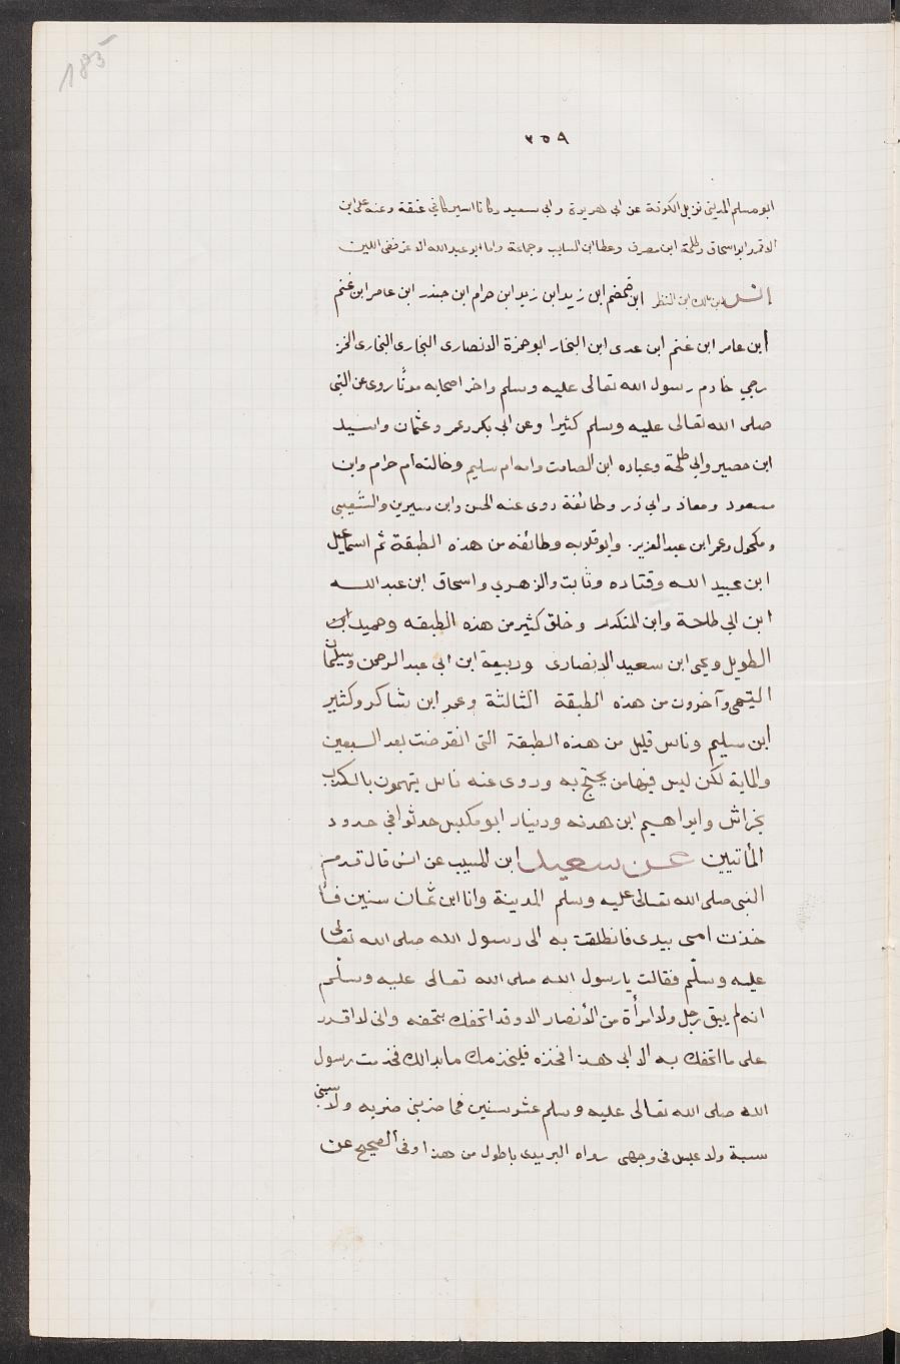 185
٢٥٩
ابو مسلم المديني نزيل الكوفة عن ابى هريرة وابى سعيد وكانا اسيركا في عتقة وعنه على ابن
الاقمر وابو اسحاق وطلحة ابن مصرف وعطا ابن السايب وجماعة واما ابو عبد الله الاغر فمن اللين
انس ابن مالك ابن النظر ابن ضمضم ابن زيد ابن زيد ابن حرام ابن جندر ابن عامر ابن غنم
ابن عامر ابن غنم ابن عدى ابن النجار ابو حمزة الانصارى النجارى النجارى الخز
رجي خادم رسول الله تعالى عليه وسلم واخر اصحابه موتًا روى عن النبى
صلى الله تعالى عليه وسلم كثيرا وعن ابى بكر وعمر وعثمان واسيد
ابن حصير وابى طلحة وعباده ابن الصامت وامه ام سليم وخالته ام حرام وابن
مسعود ومعاذ وابى ذر وطائفة روى عنه الحسن وابن سيرين والشعبى
ومكحول وعمر ابن عبد العزيز. وابو قلابه وطائفه من هذه الطبقة ثم اسماعيل
ابن عبيد الله وقتاده وثابت والزهرى واسحاق ابن عبد الله
ابن ابى طلحة وابن المنكدر وخلق كثير من هذه الطبقه وحميد ابن
الطويل ويحى ابن سعيد الانصارى وربيعة ابن ابى عبد الرحمن وسليمان
التيمى وآخرون من هذه الطبقة الثالثة وعمر ابن شاكر وكثير
ابن سليم وناس قليل من هذه الطبقة التى انقرضت بعد السبعين
والماية لكن ليس فيها من يحتج به وروى عنه ناس يتهمون بالكذب
بخراش وابراهيم ابن هدنه ودينار ابو مكيس حدثوا في حدود
المأتيين عن سعيد ابن المسيب عن انس قال قدم
النبى صلى الله تعالى عليه وسلم المدينة وانا ابن ثمان سنين فأ
خذت امى بيدى فانطلقت به الى رسول الله صلى الله تعالى
عليه وسلم فقالت يا رسول الله صلى الله تعالى عليه وسلم
انه لم يبق رجل ولا امرأة من الأنصار الا وقد اتحفك بتحفه وانى لا اقدر
على ما اتحفك به الا ابى هذا فخذه فليخدمك ما بدالك فخدمت رسول
الله صلى الله تعالى عليه وسلم عشر سنين فما ضربنى ضربه ولا سبنى
سبة ولا عبس فى وجهى رواه البريدى باطول من هذا وفى الصحيح عن